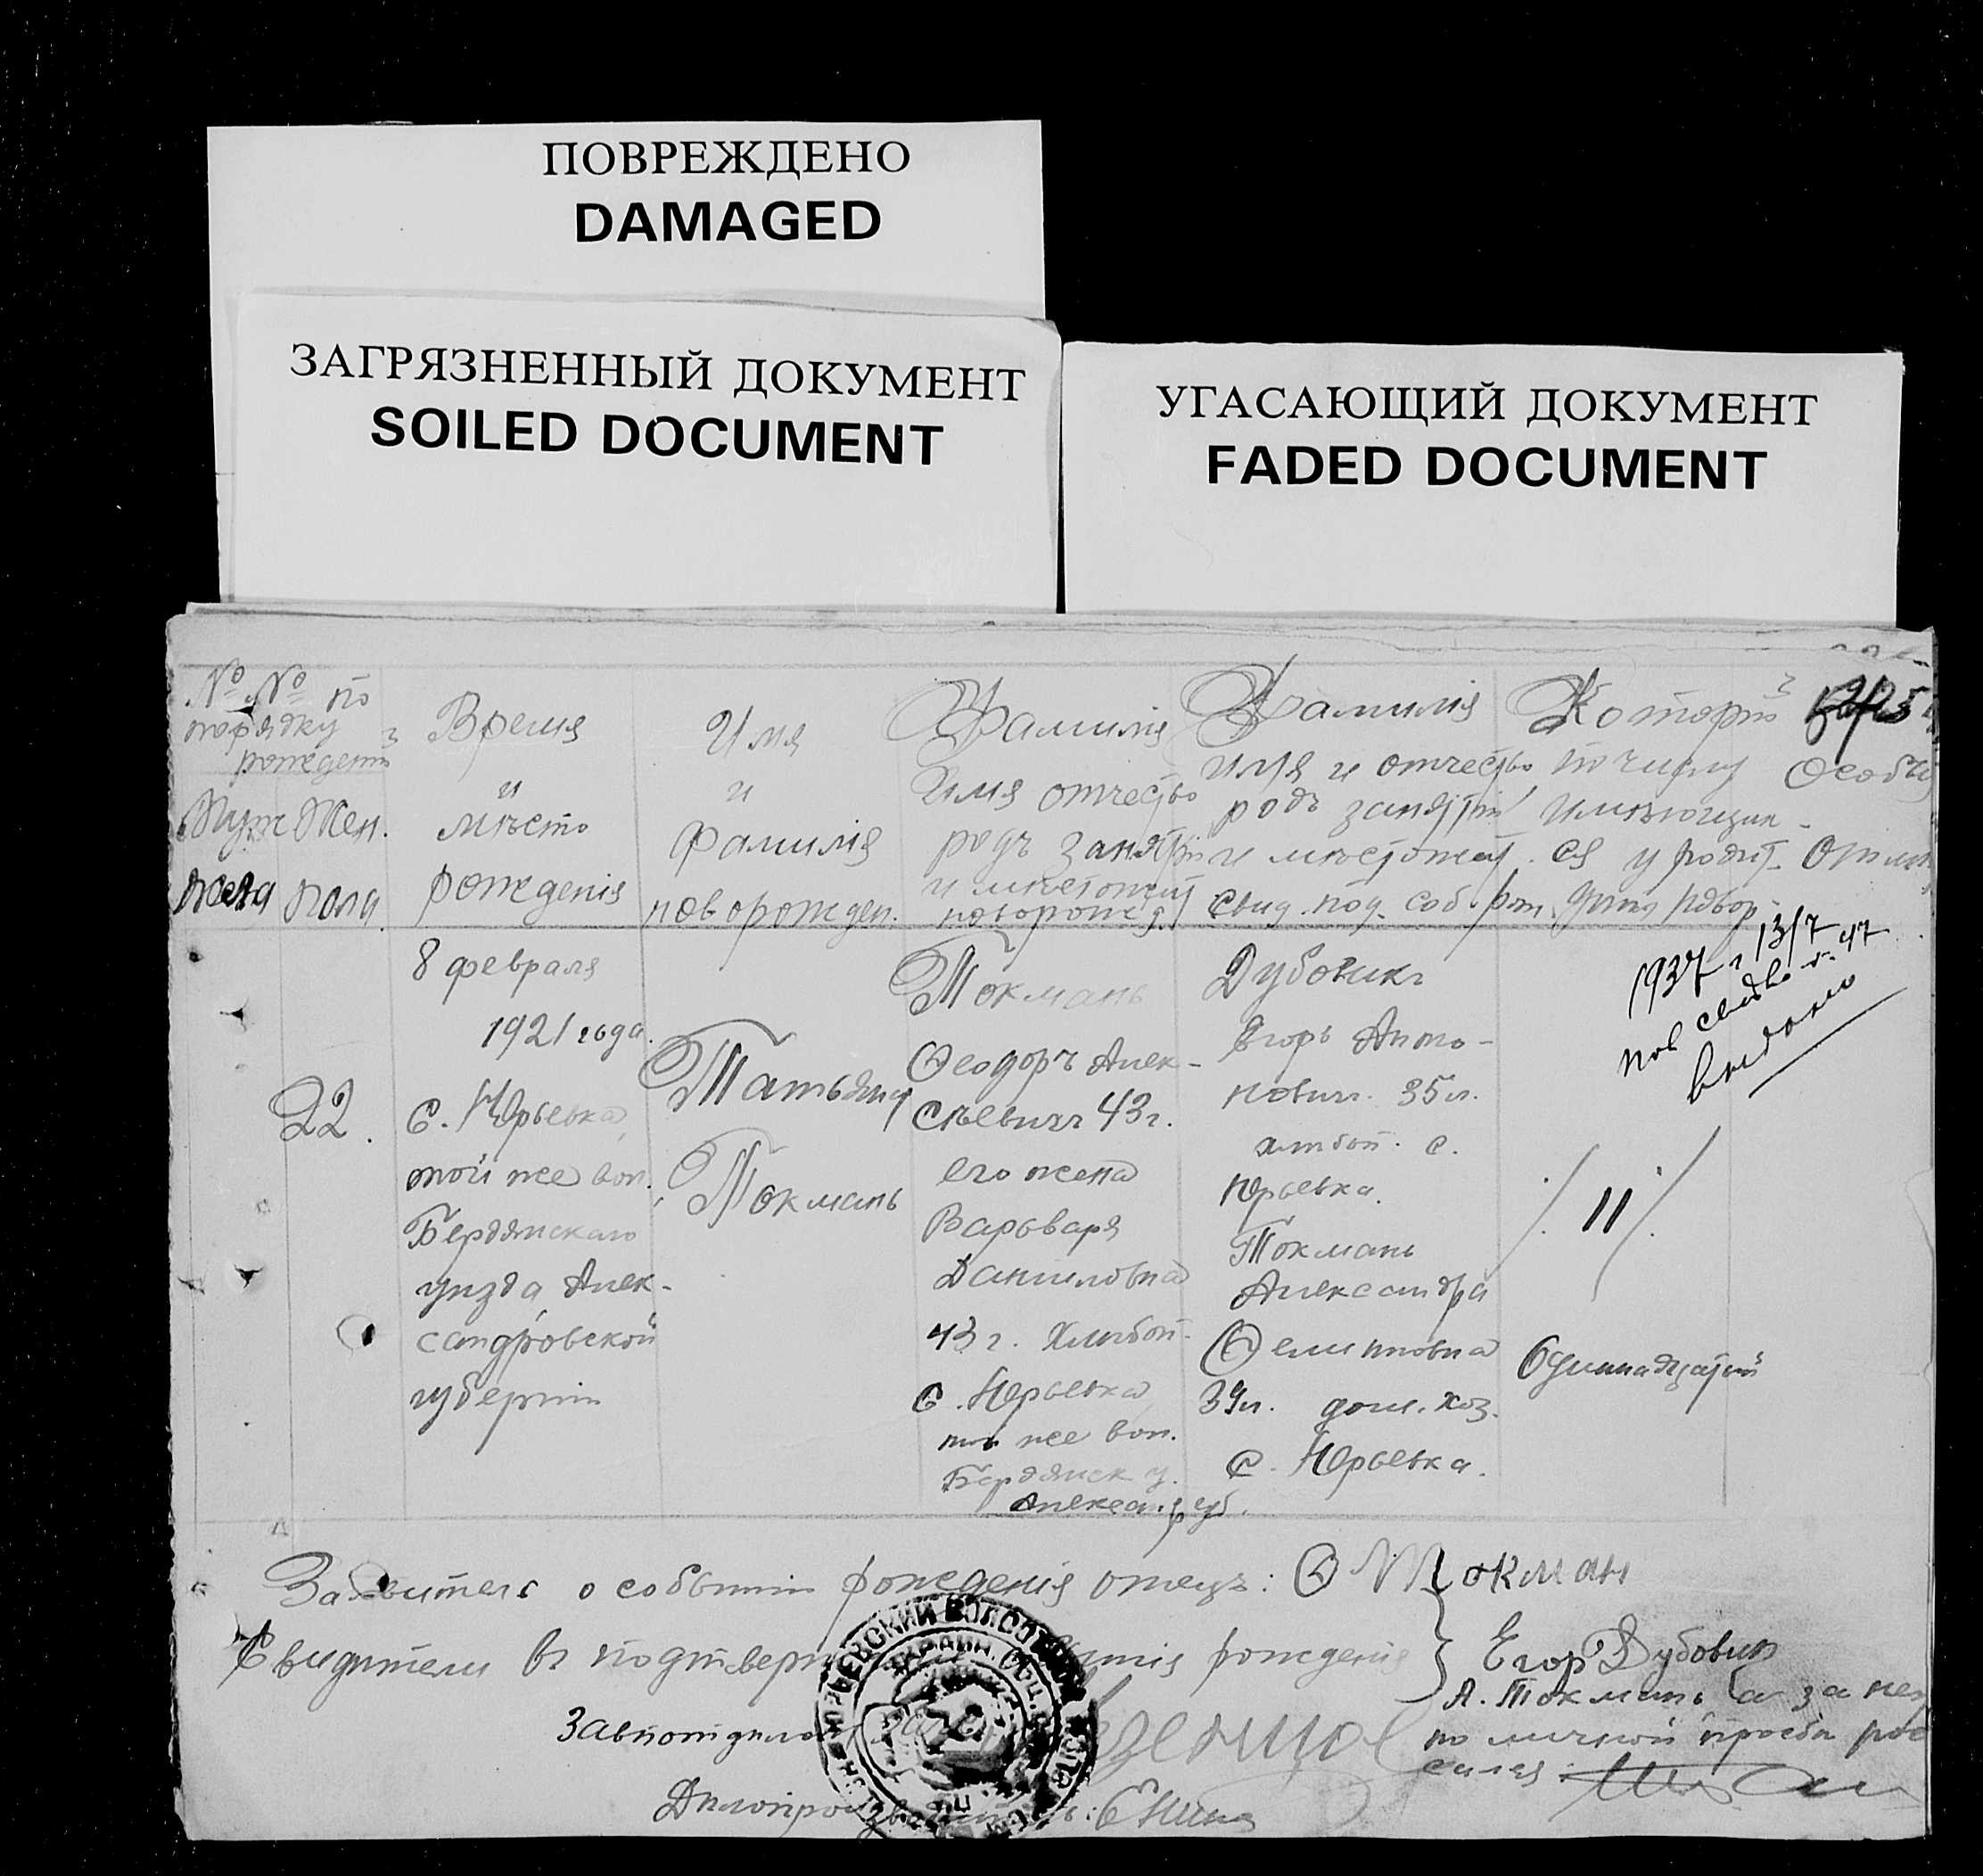 ПОВРЕЖДЕНО
DAMAGED
ЗАГРЯЗНЕННЫЙ ДОКУМЕНТ
SOILED DOCUMENT
УГАСАЮЩИЙ ДОКУМЕНТ
FADED DOCUMENT
№ № по
порядку
рожденія
Муж Жен.
пола пола
Время
и
мѣсто
рожденія
Имя
и
фамилія
новорожден.
Фамилія
имя отчество
родъ занятій
и мѣстожит
новорожд.
Фамилія
имя и отчество
родъ занятій
и мѣстожит.
свид. под. соб. рож.
Который
по числу
имѣющих-
ся у родит.
дѣтей
Особыя
22.
8 февраля
1921 года.
с. Юрьевка,
той же вол.
Бердянскаго
уѣзда Алек-
сандровской
губерніи
Татьяна
Токмань
Токмань
Ѳеодоръ Алек-
сѣевичъ 43 г.
его жена
Варьваря
Даниловна
43 г. хлѣбоп.
с. Юрьевка
той же вол.
Бердянск у.
Алексан. губ.
Дубовикъ
Егоръ Анто-
новичъ. 35 л.
хлѣбоп. с.
Юрьевка.
Токмань
Александра
Филиповна
39 л. дом. хоз.
с. Юрьевка.
1937 г 13/7
выдано
11
Одинадцатый
Заявитель о событіи рожденія отецъ: Ѳ Токман
Свидѣтели въ подтвер рожденія
Егор Дубовик
А. Токмань а за нея
по личной просьбе рос
сался
Завподотдѣлом
ЮРЬЕВСКИЙ ВОЛОСТ
УКРАИН. СОЦ.